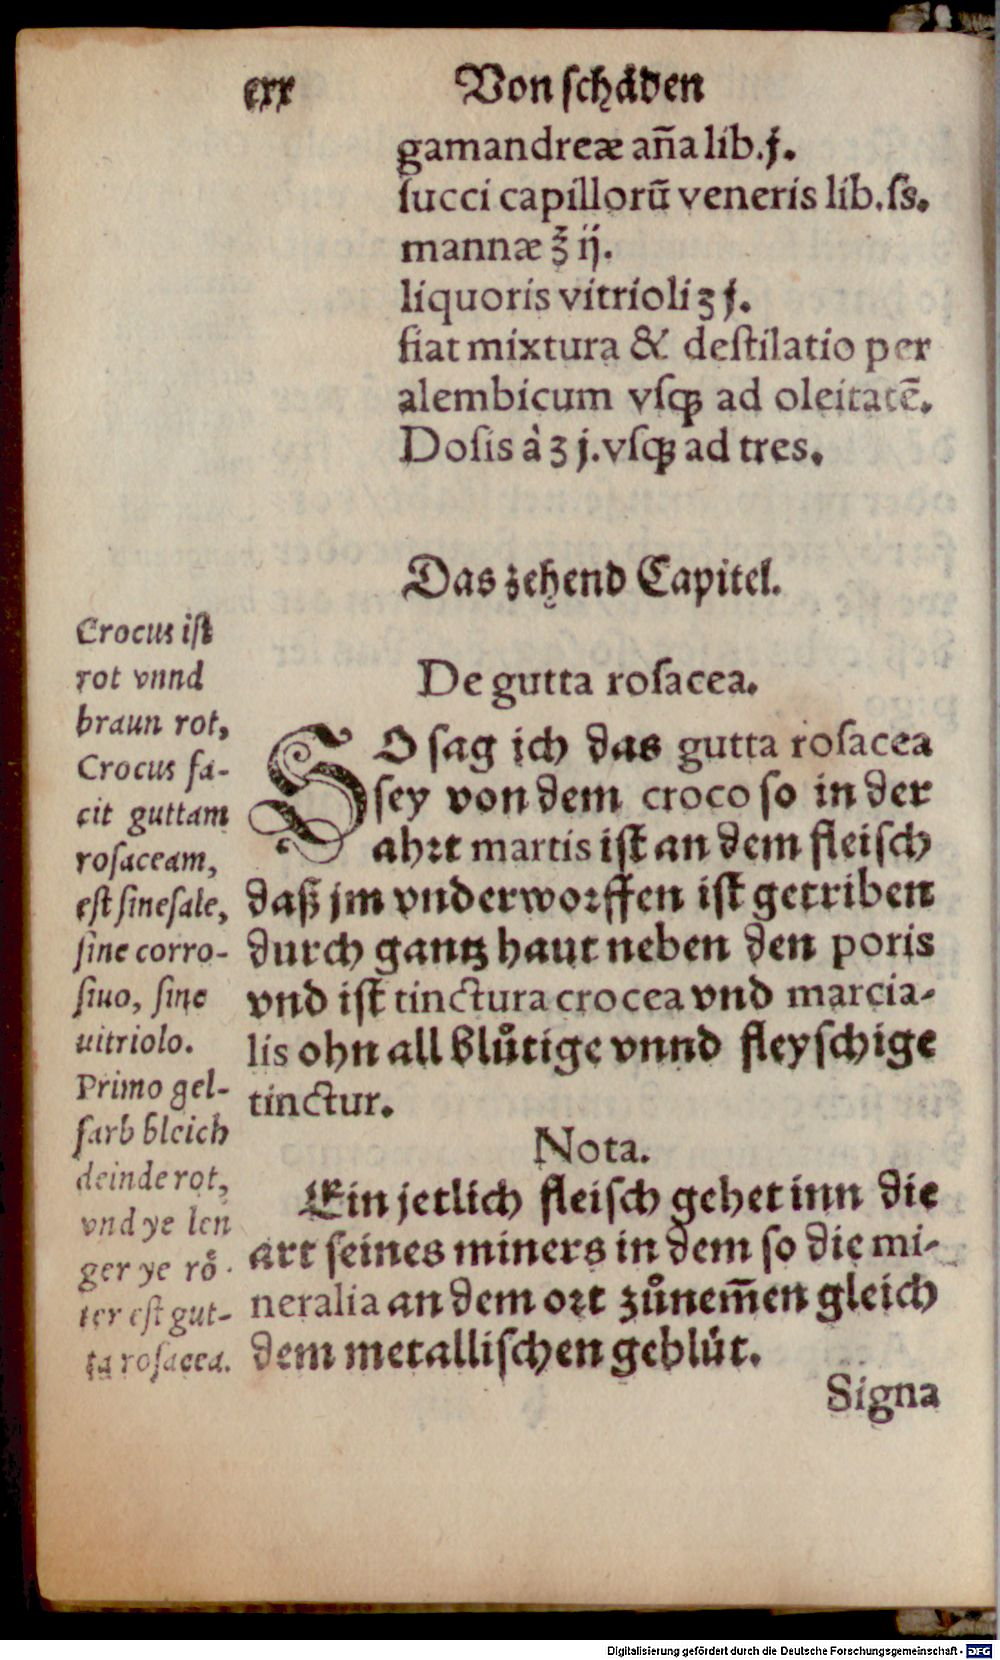 cxx Von schåden
gamandreæ aña lib.j.
succi capillorū veneris lib.ſs.
mannæ ℥ ij.
liquoris vitrioli ʒ j.
fiat mixtura & deſtilatio per
alembicum vſqꝫ ad oleitatē.
Doſis à ʒ j. vſqꝫ ad tres.
Das zehend Capitel.
De gutta roſacea.
SO ſag ich das gutta roſacea
ſey von dem croco ſo in der
ahꝛt martis iſt an dem fleiſch
daß jm vnderwoꝛffen iſt getriben
durch gantz haut neben den poris
vnd iſt tinctura crocea vnd marcia-
lis ohn all blůtige vnnd fleyſchige
tinctur.
Nota.
Ein jetlich fleiſch gehet inn die
art ſeines miners in dem ſo die mi-
neralia an dem oꝛt zůnem̃en gleich
dem metalliſchen geblüt.
Signa
Crocus iſt
rot vnnd
braun rot,
Crocus fa-
cit guttam
roſaceam,
eſt ſine ſale,
ſine corro-
ſiuo, ſine
uitriolo.
Primo gel-
farb bleich
deinde rot,
vnd ye len
ger ye rö
ter eſt gut-
ta roſacea.
Digitalisierung gefördert durch die Deutsche Forschungsgemeinschaft - DFG